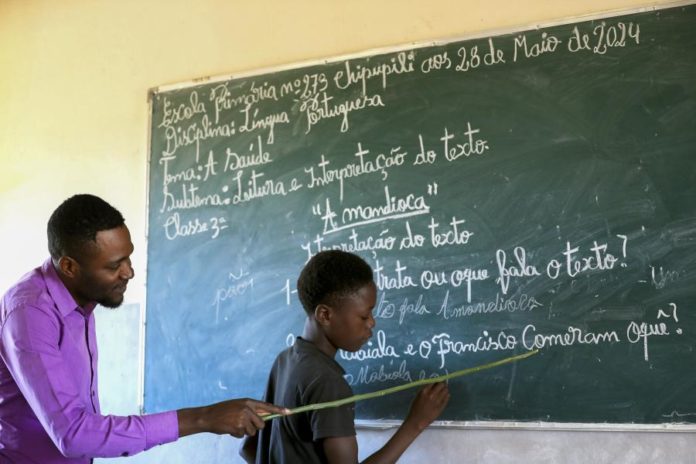 Escola Primária nº 273 Chipupili aos 28 de Maio de 2024
Disciplina: Língua Portuguesa
Tema: A Saúde
Subtema: Leitura e Interpretação do texto.
Classe: 3ª
"A mandioca"
Interpretação do texto
trata ou oque fala o texto?
pão
fala A mandioca
e o Francisco Comeram oquê?